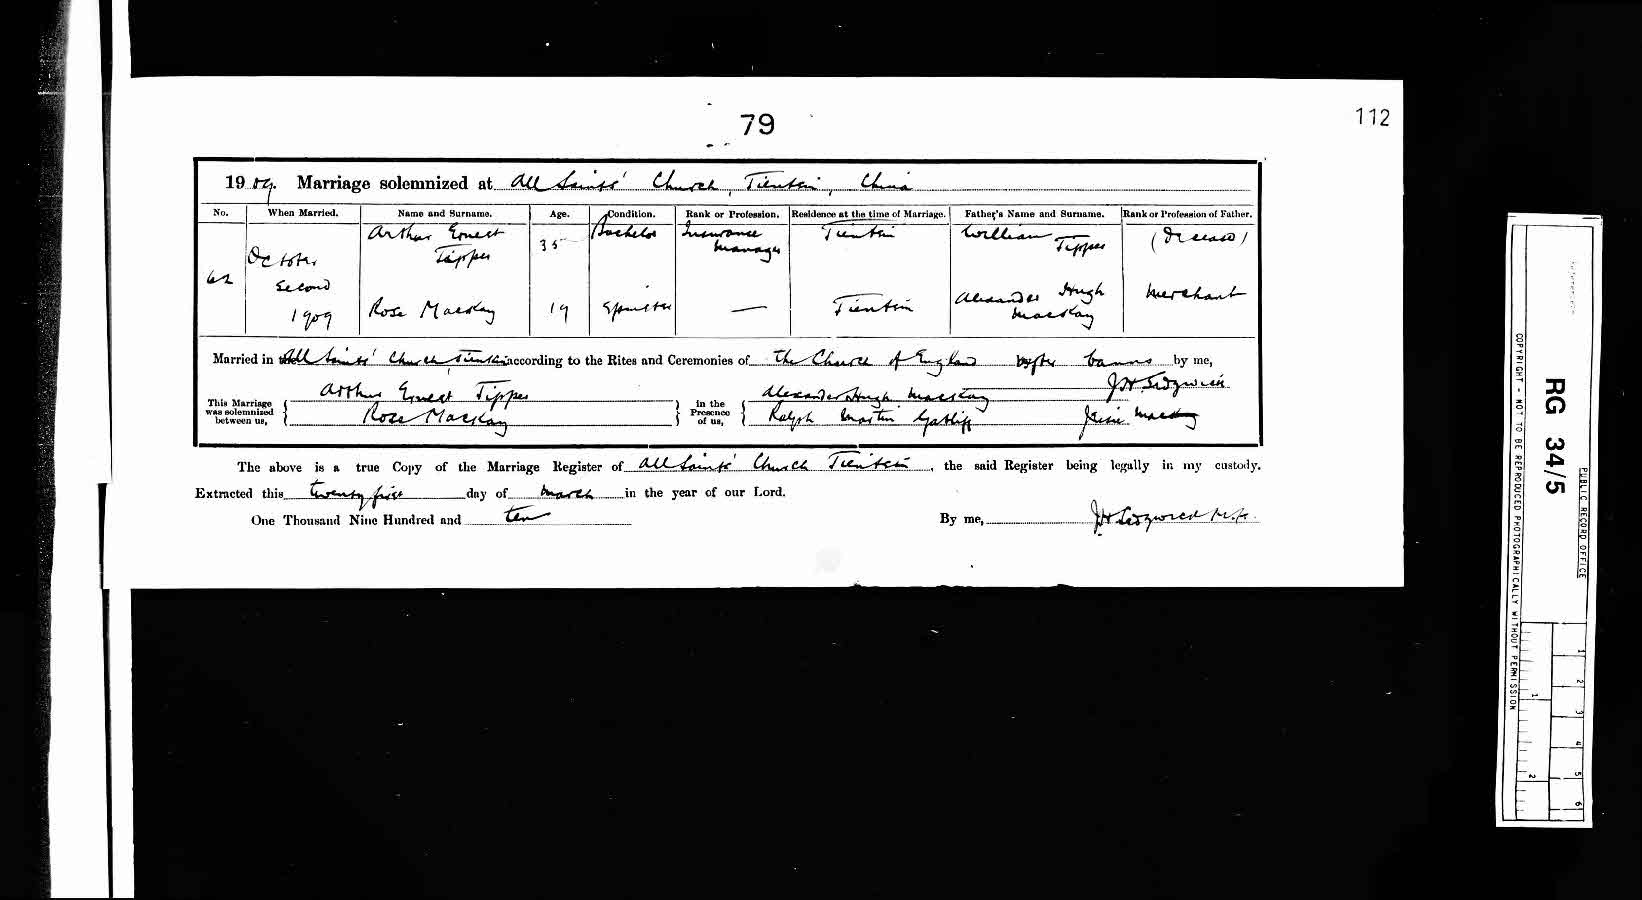 79
112
1909. Marriage solemnized at All Saints' Church, Tientsin, China
No. When Married. Name and Surname. Age. Condition. Rank or Profession. Residence at the time of Marriage. Father's Name and Surname. Rank or Profession of Father.
62 October Second 1909
Arthur Ernest Tipper 35 Bachelor Insurance Manager Tientsin William Tipper (Deceased)
Rose MacKay 19 Spinster — Tientsin Alexander Hugh MacKay Merchant
Married in the All Saints' Church, Tientsin according to the Rites and Ceremonies of the Church of England after banns by me,
J H Sedgwick
This Marriage was solemnized between us, { Arthur Ernest Tipper Rose MacKay }
in the Presence of us, { Alexander Hugh MacKay Ralph Martin Gatliff Jessie MacKay
The above is a true Copy of the Marriage Register of All Saints' Church Tientsin, the said Register being legally in my custody.
Extracted this twenty five day of March in the year of our Lord.
One Thousand Nine Hundred and ten
By me, J H Sedgwick
PUBLIC RECORD OFFICE
RG 34/5
COPYRIGHT - NOT TO BE REPRODUCED PHOTOGRAPHICALLY WITHOUT PERMISSION
1 2 3 4 5 6
1 2